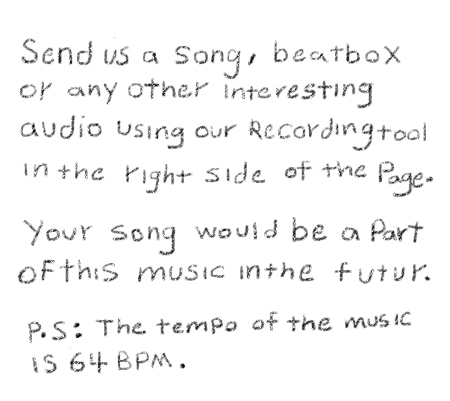 Send us a song, beatbox
or any other interesting
audio using our Recordingtool
in the right side of the Page.
Your song would be a Part
of this music in the futur.
P.S: The tempo of the music
is 64 BPM.